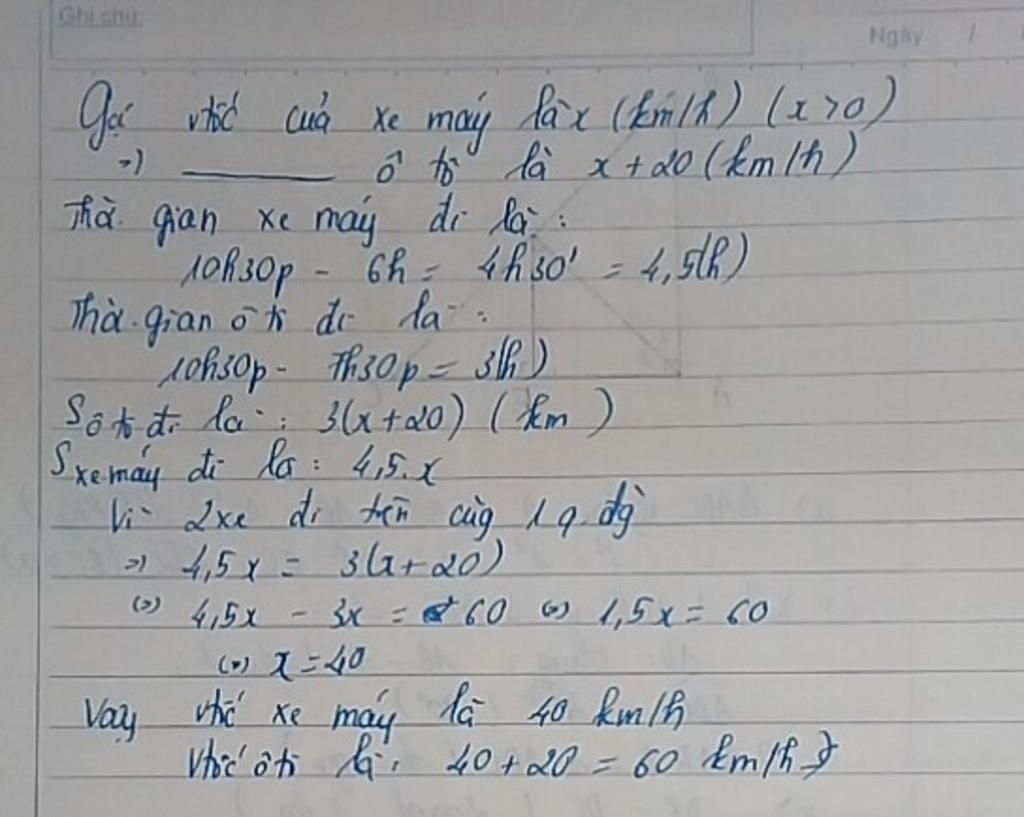 Ghi chú:
Ngày / /
Gọi vtốc của xe máy là x (km/h) (x>0)
=) ______ ô tô là x + 20 (km/h)
Thời gian xe máy đi là:
10h30p - 6h = 4h30' = 4,5(h)
Thời gian ô tô đi là:
10h30p - 7h30p = 3(h)
S ô tô đi là: 3(x+20) (km)
S xe máy đi là: 4,5.x
Vì 2xe đi trên cùg 1 q.đg
=) 4,5x = 3(x+20)
(=) 4,5x - 3x = 60 (=) 1,5x = 60
(=) x = 40
Vậy vtốc xe máy là 40 km/h
Vtốc ô tô là: 40 + 20 = 60 km/h